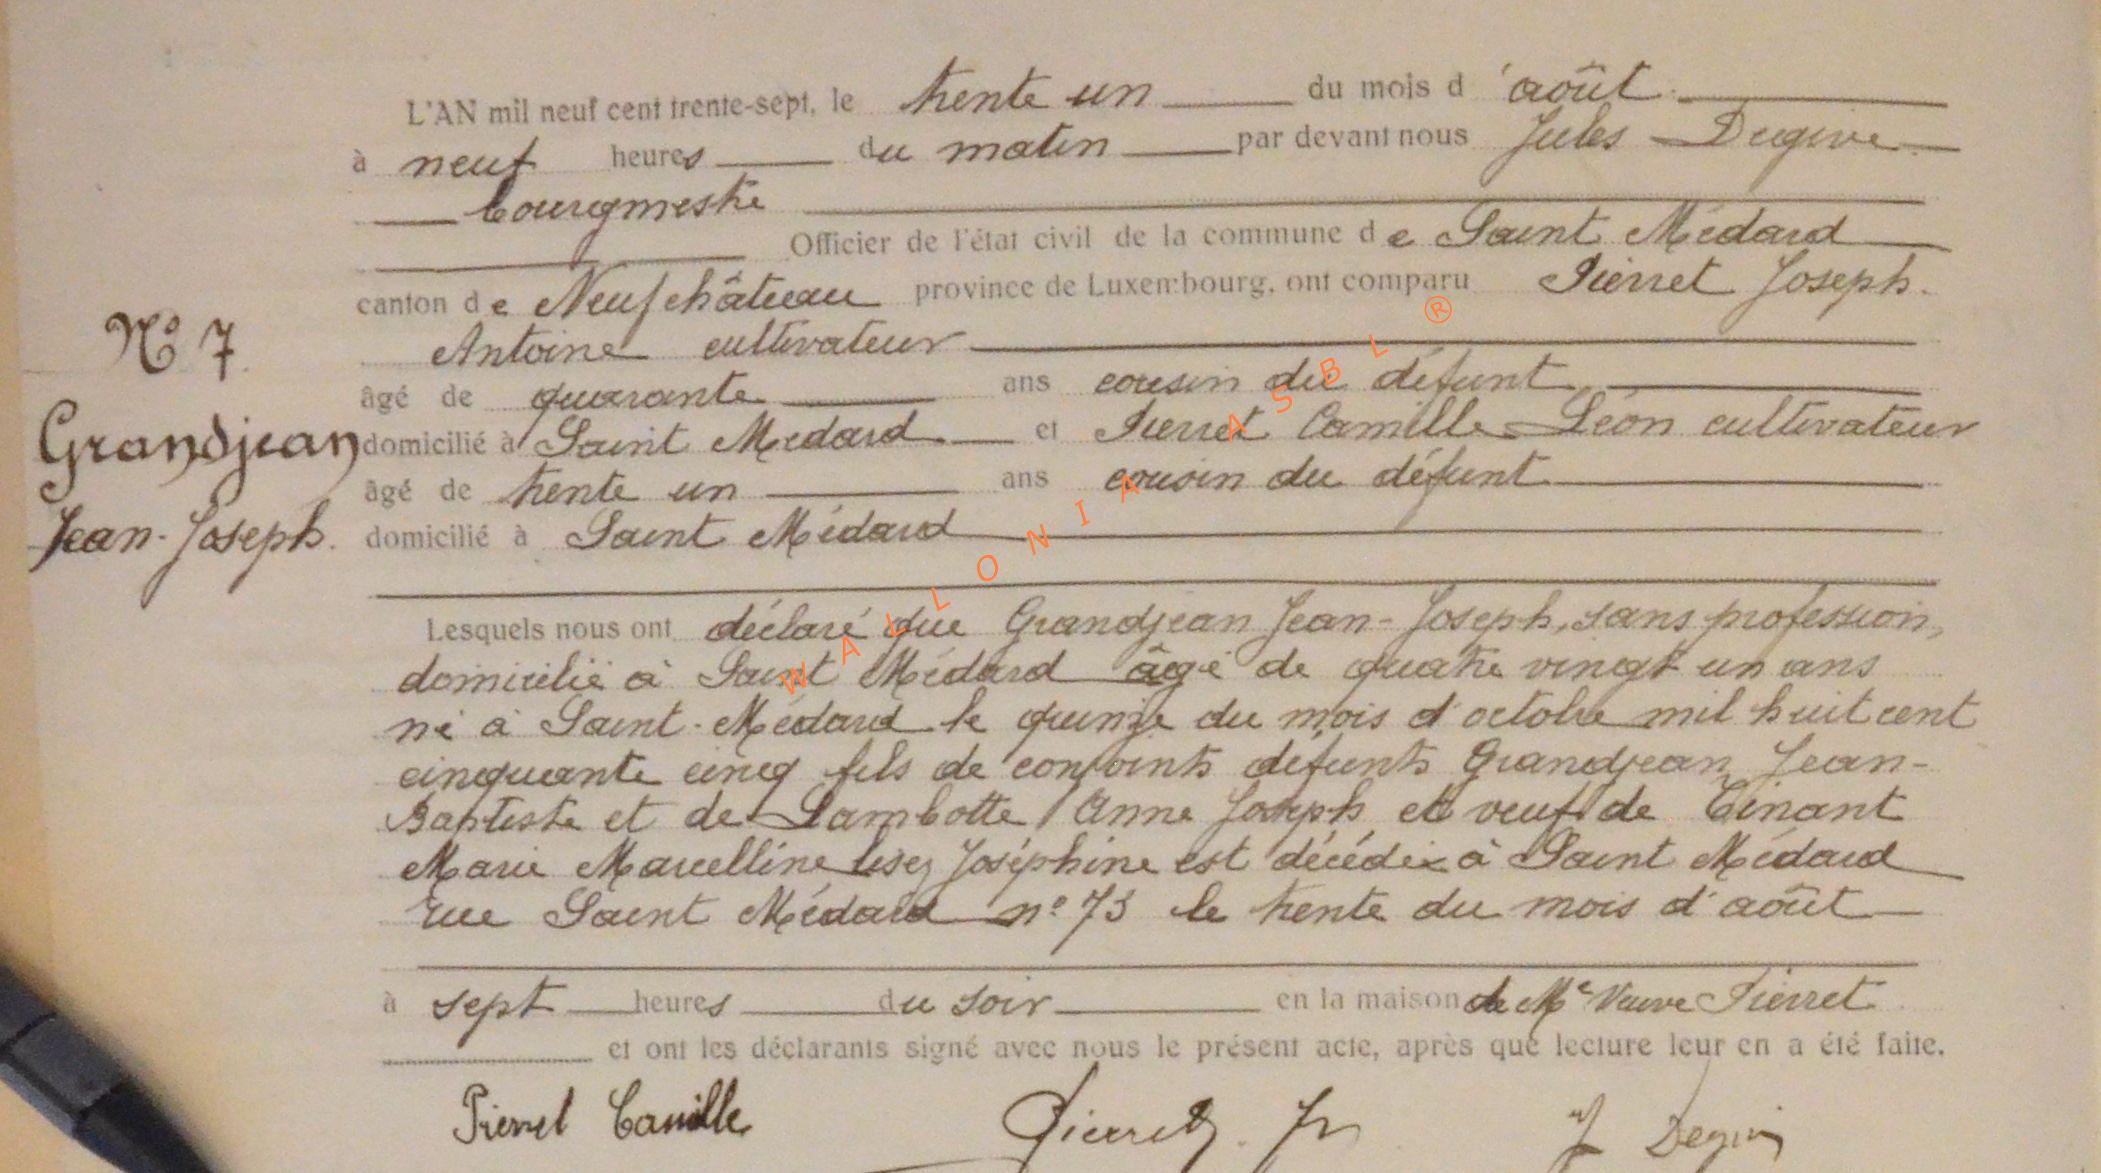 L'AN mil neuf cent trente-sept, le trente un du mois d'août
à neuf heures du matin par devant nous Jules Degive
bourgmestre
Officier de l'état civil de la commune de Saint Médard
canton de Neufchâteau province de Luxembourg, ont comparu Pierret Joseph
Antoine cultivateur
âgé de quarante ans cousin du défunt
domicilié à Saint Médard et Pierret Camille Léon cultivateur
âgé de trente un ans cousin du défunt
domicilié à Saint Médard
N° 7
Grandjean
Jean-Joseph.
Lesquels nous ont déclaré que Grandjean Jean-Joseph, sans profession,
domicilié à Saint Médard âgé de quatre vingt un ans
né à Saint-Médard le quinze du mois d'octobre mil huit cent
cinquante cinq fils de conjoints défunts Grandjean Jean-
Baptiste et de Lambotte Anne Joseph et veuf de Tinant
Marie Marcelline lisez Joséphine est décédé à Saint Médard
rue Saint Médard n° 73 le trente du mois d'août
à sept heures du soir en la maison de Me Veuve Pierret
et ont les déclarants signé avec nous le présent acte, après que lecture leur en a été faite.
Pierret Camille Pierret J
WALLONIA ASBL ®